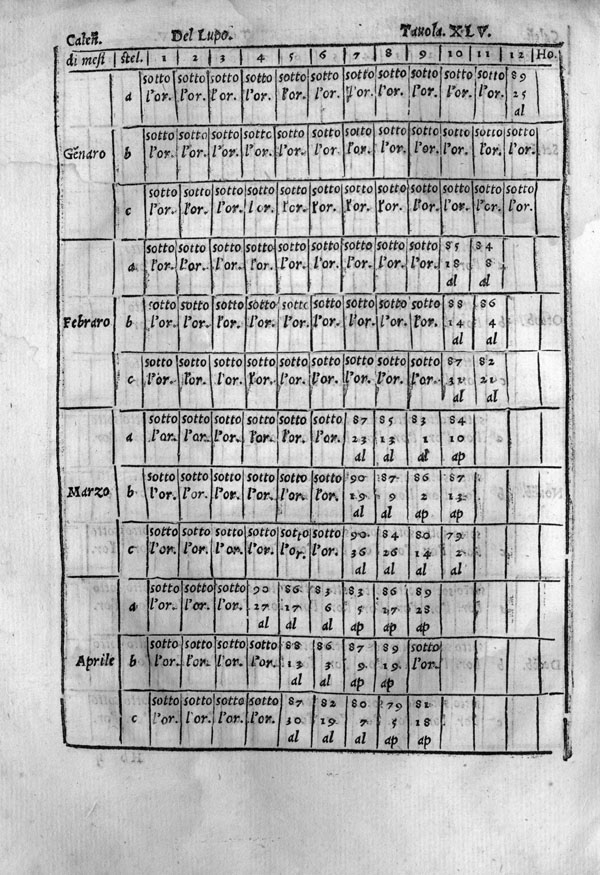 Calen. Del Lupo. Tauola. XLV.
di mesi stel. 1 2 3 4 5 6 7 8 9 10 11 12 Ho.
sotto sotto sotto sotto sotto sotto sotto sotto sotto sotto sotto 89
a l'or. l'or. l'or. l'or. l'or. l'or. l'or. l'or. l'or. l'or. l'or. 25
al
sotto sotto sotto sotto sotto sotto sotto sotto sotto sotto sotto sotto
Gẽnaro b l'or. l'or. l'or. l'or. l'or. l'or. l'or. l'or. l'or. l'or. l'or. l'or.
sotto sotto sotto sotto sotto sotto sotto sotto sotto sotto sotto sotto
c l'or. l'or. l'or. l'or. l'or. l'or. l'or. l'or. l'or. l'or. l'or. l'or.
sotto sotto sotto sotto sotto sotto sotto sotto sotto 85 84
a l'or. l'or. l'or. l'or. l'or. l'or. l'or. l'or. l'or. 18 8
al al
sotto sotto sotto sotto sotto sotto sotto sotto sotto 88 86
Febraro b l'or. l'or. l'or. l'or. l'or. l'or. l'or. l'or. l'or. 14 4
al al
sotto sotto sotto sotto sotto sotto sotto sotto sotto 87 82
c l'or. l'or. l'or. l'or. l'or. l'or. l'or. l'or. l'or. 31 21
al al
sotto sotto sotto sotto sotto sotto 87 85 83 84
a l'or. l'or. l'or. l'or. l'or. l'or. 23 13 1 10
al al al ap
sotto sotto sotto sotto sotto sotto 90 87 86 87
Marzo b l'or. l'or. l'or. l'or. l'or. l'or. 19 9 2 13
al al ap ap
sotto sotto sotto sotto sotto sotto 90 84 80 79
c l'or. l'or. l'or. l'or. l'or. l'or. 36 26 14 2
al al al al
sotto sotto sotto 90 86 83 83 86 89
a l'or. l'or. l'or. 27 17 6 5 17 28
al al al ap ap ap
sotto sotto sotto sotto 88 86 87 89 sotto
Aprile b l'or. l'or. l'or. l'or. 13 3 9 19 l'or.
al al ap ap
sotto sotto sotto sotto 87 82 80 79 81
c l'or. l'or. l'or. l'or. 30 19 7 5 18
al al al ap ap